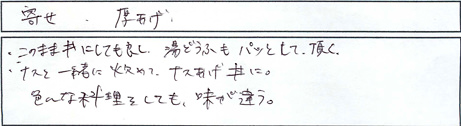 寄せ 厚あげ
・このまま丼にしても良し、湯どうふもパッとして、頂く
・ナスと一緒に炊めて、ナスあげ丼に。
色んな料理をしても、味が違う。